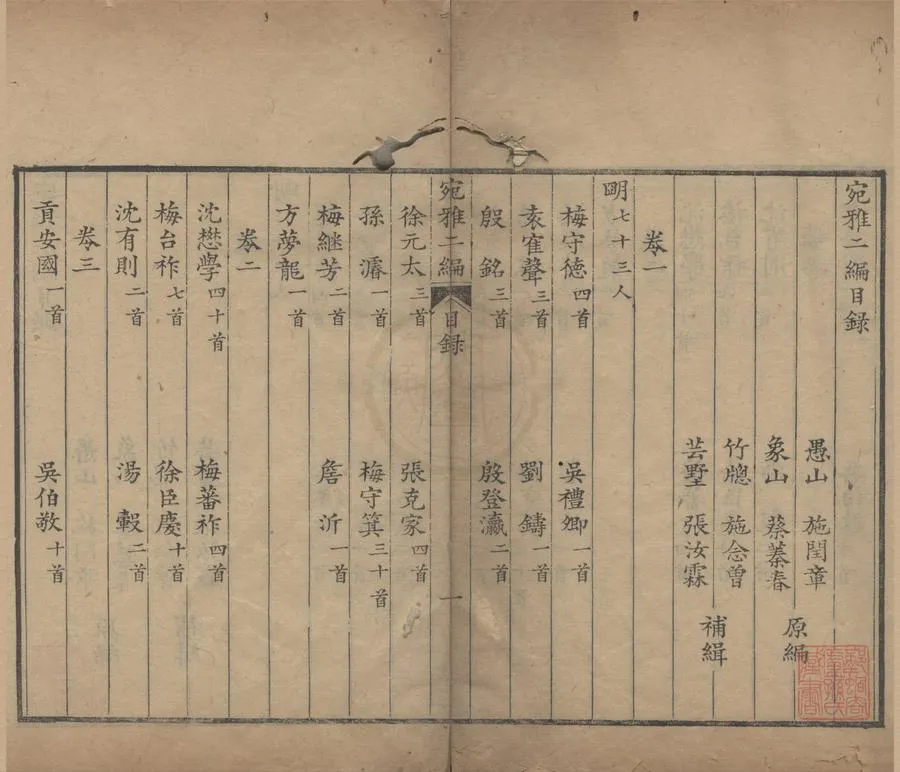 宛雅二編目録
愚山 施閏章
象山 蔡蓁春
原編
竹牕 施念曾
芸墅 張汝霖
補緝
卷一
明七十三人
梅守德四首 吳禮卿一首
袁寉聲三首 劉鑄一首
殷銘三首 殷登瀛二首
宛雅二編 目録 一
徐元太三首 張克家四首
孫濬一首 梅守箕三十首
梅繼芳二首 詹沂一首
方夢龍一首
卷二
沈懋學四十首 梅蕃祚四首
梅台祚七首 徐臣慶十首
沈有則二首 湯㲄二首
卷三
貢安國一首 吳伯敬十首